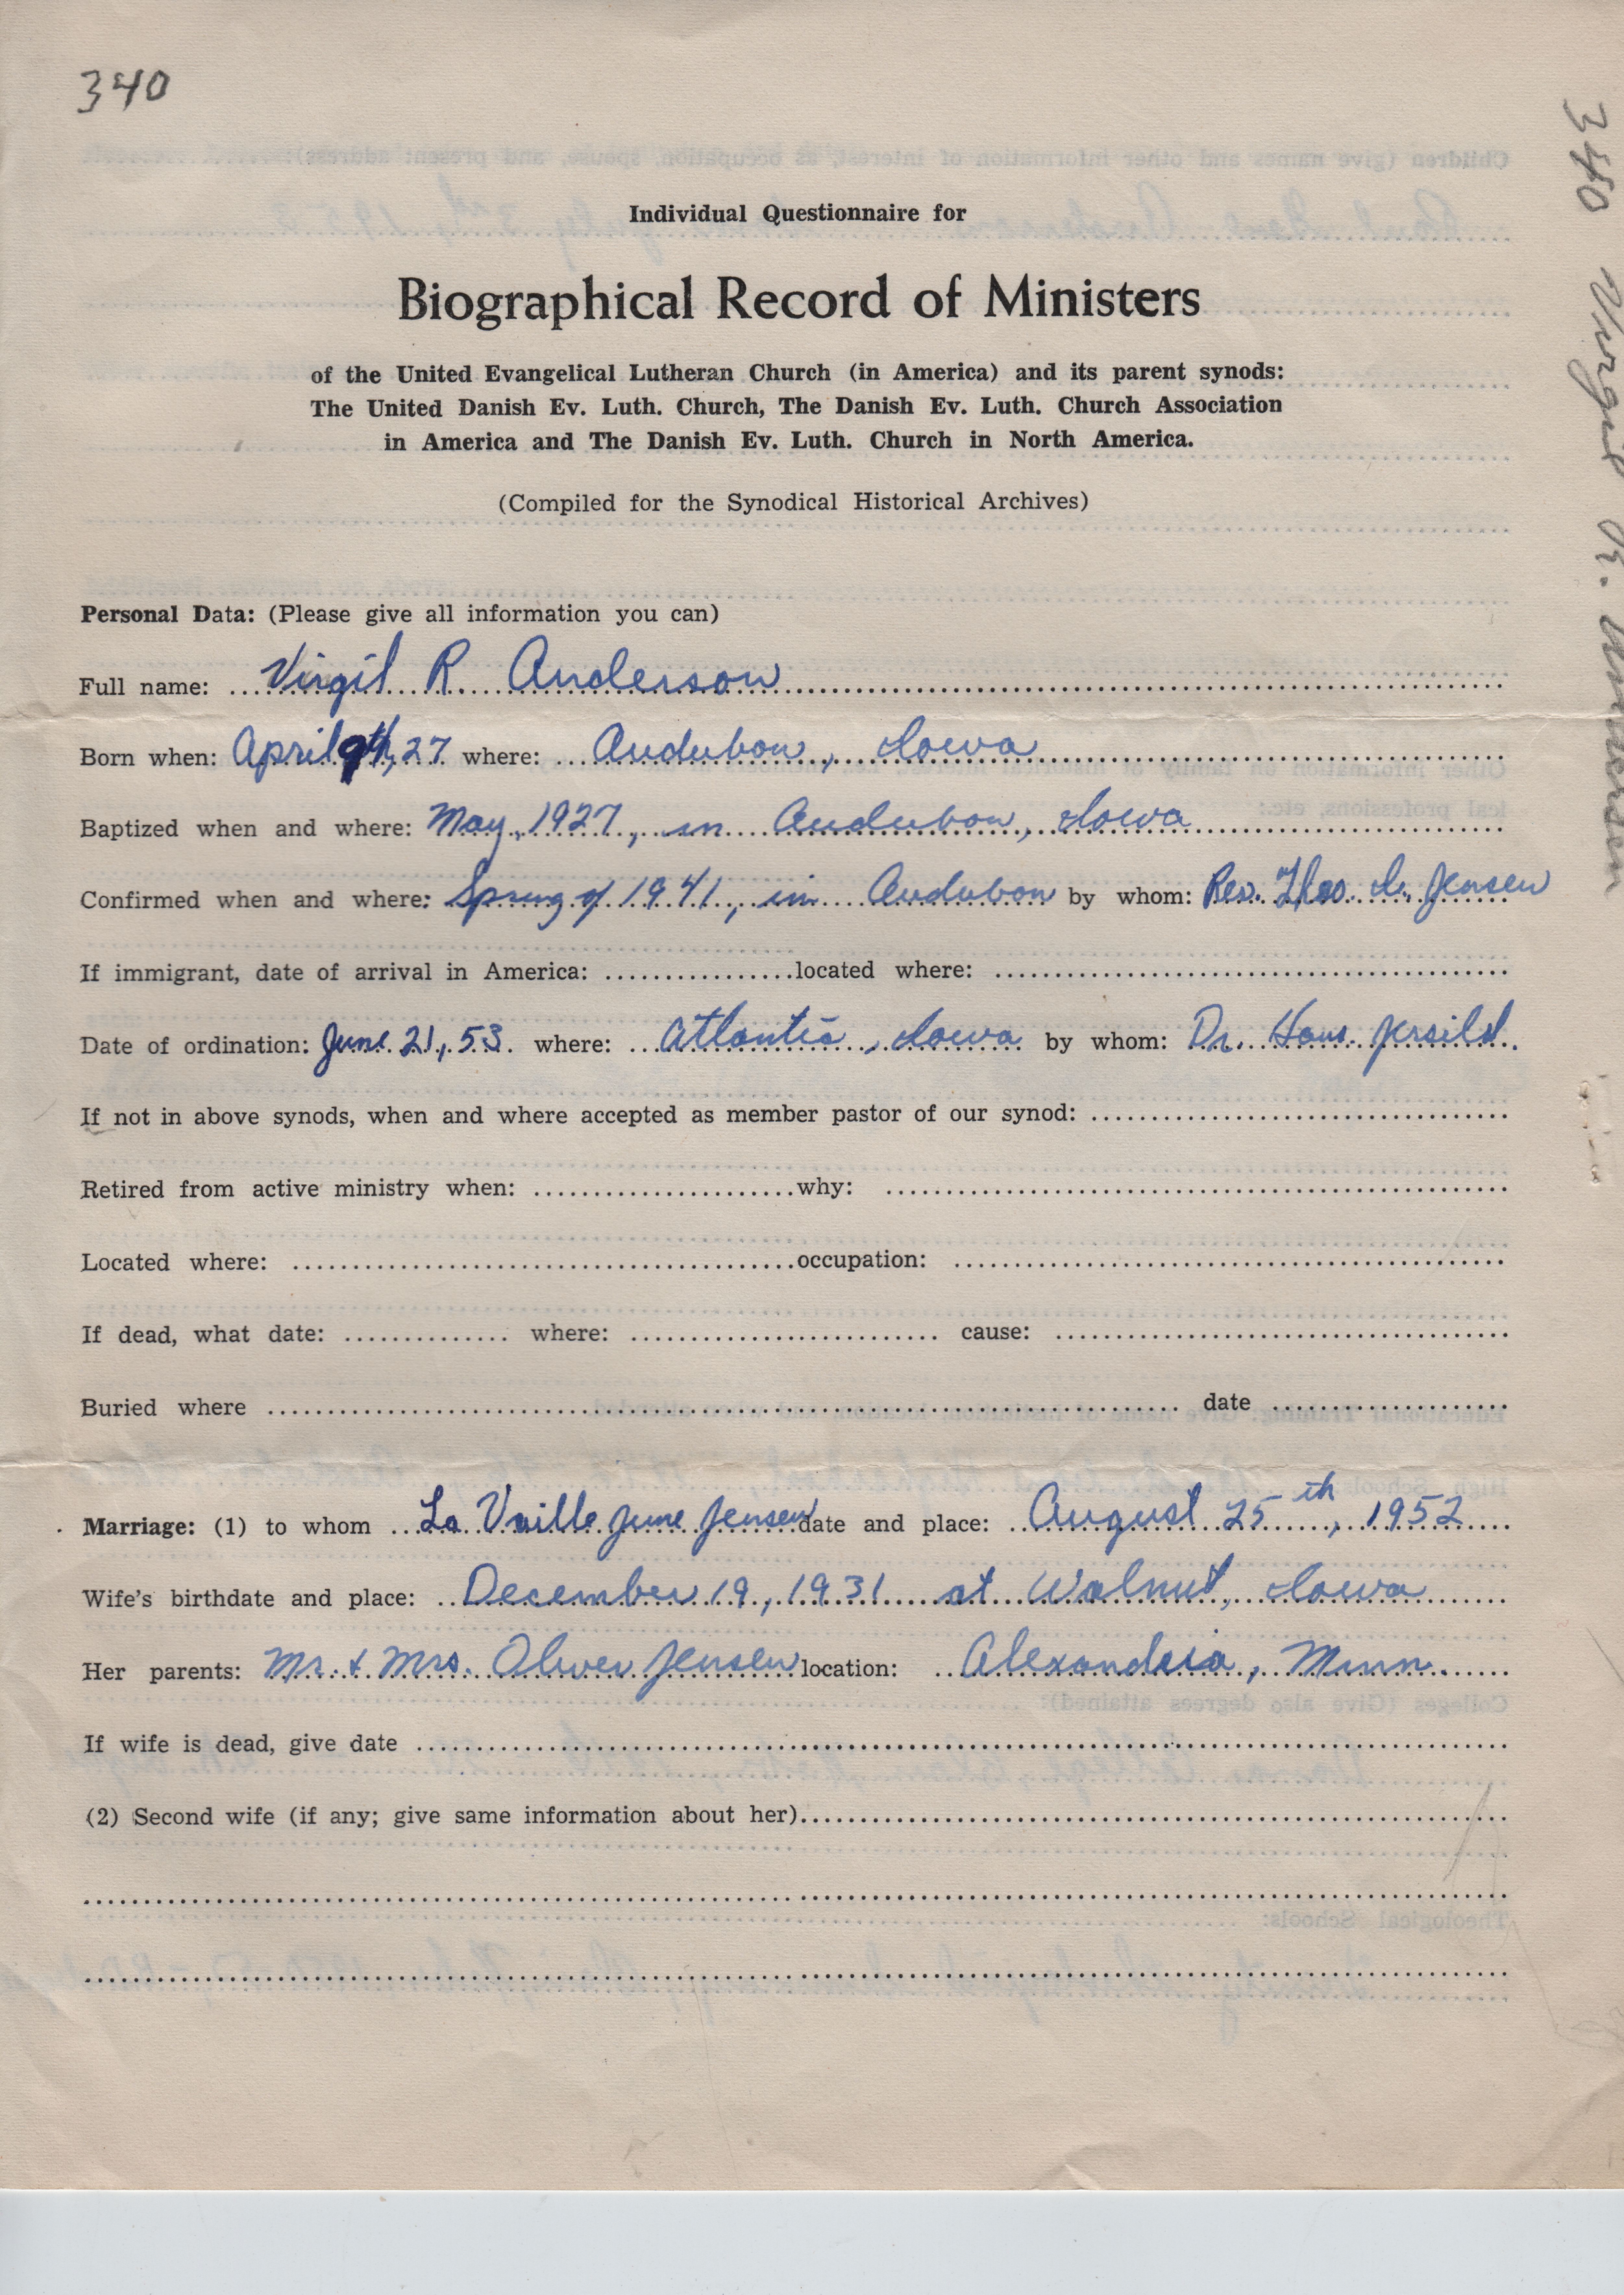 340
Individual Questionnaire for
Biographical Record of Ministers
of the United Evangelical Lutheran Church (in America) and its parent synods:
The United Danish Ev. Luth. Church, The Danish Ev. Luth. Church Association
in America and The Danish Ev. Luth. Church in North America.
(Compiled for the Synodical Historical Archives)
Personal Data: (Please give all information you can)
Full name: Virgil R Anderson
Born when: April 9th, 27 where: Audubon, Iowa
Baptized when and where: May, 1927, in Audubon, Iowa
Confirmed when and where: Spring of 1941, in Audubon by whom: Rev. Theo. I. Jensen
If immigrant, date of arrival in America: located where:
Date of ordination: June 21, 53 where: Atlantic, Iowa by whom: Dr. Hans Jersild.
If not in above synods, when and where accepted as member pastor of our synod:
Retired from active ministry when: why:
Located where: occupation:
If dead, what date: where: cause:
Buried where date
Marriage: (1) to whom La Vaille June Jensen date and place: August 25th, 1952
Wife's birthdate and place: December 19, 1931 at Walnut, Iowa
Her parents: Mr. & Mrs. Oliver Jensen location: Alexandria, Minn.
If wife is dead, give date
(2) Second wife (if any; give same information about her)
340 Virgil R. Anderson